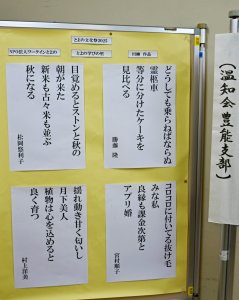 とよの文化祭2025
とよの学びの里
川柳 作品
どうしても乗らねばならぬ
霊柩車
等分に分けたケーキを
見比べる
勝藤 隆
目覚めるとストンと秋の
朝が来た
新米も古々米も並ぶ
秋になる
松岡悠利子
コロコロに付いてる抜け毛
みな私
良縁も課金次第と
アプリ婚
宮村順子
揺れ動き甘く匂いし
月下美人
植物は心を込めると
良く育つ
村上洋美
(温知会豊能支部)